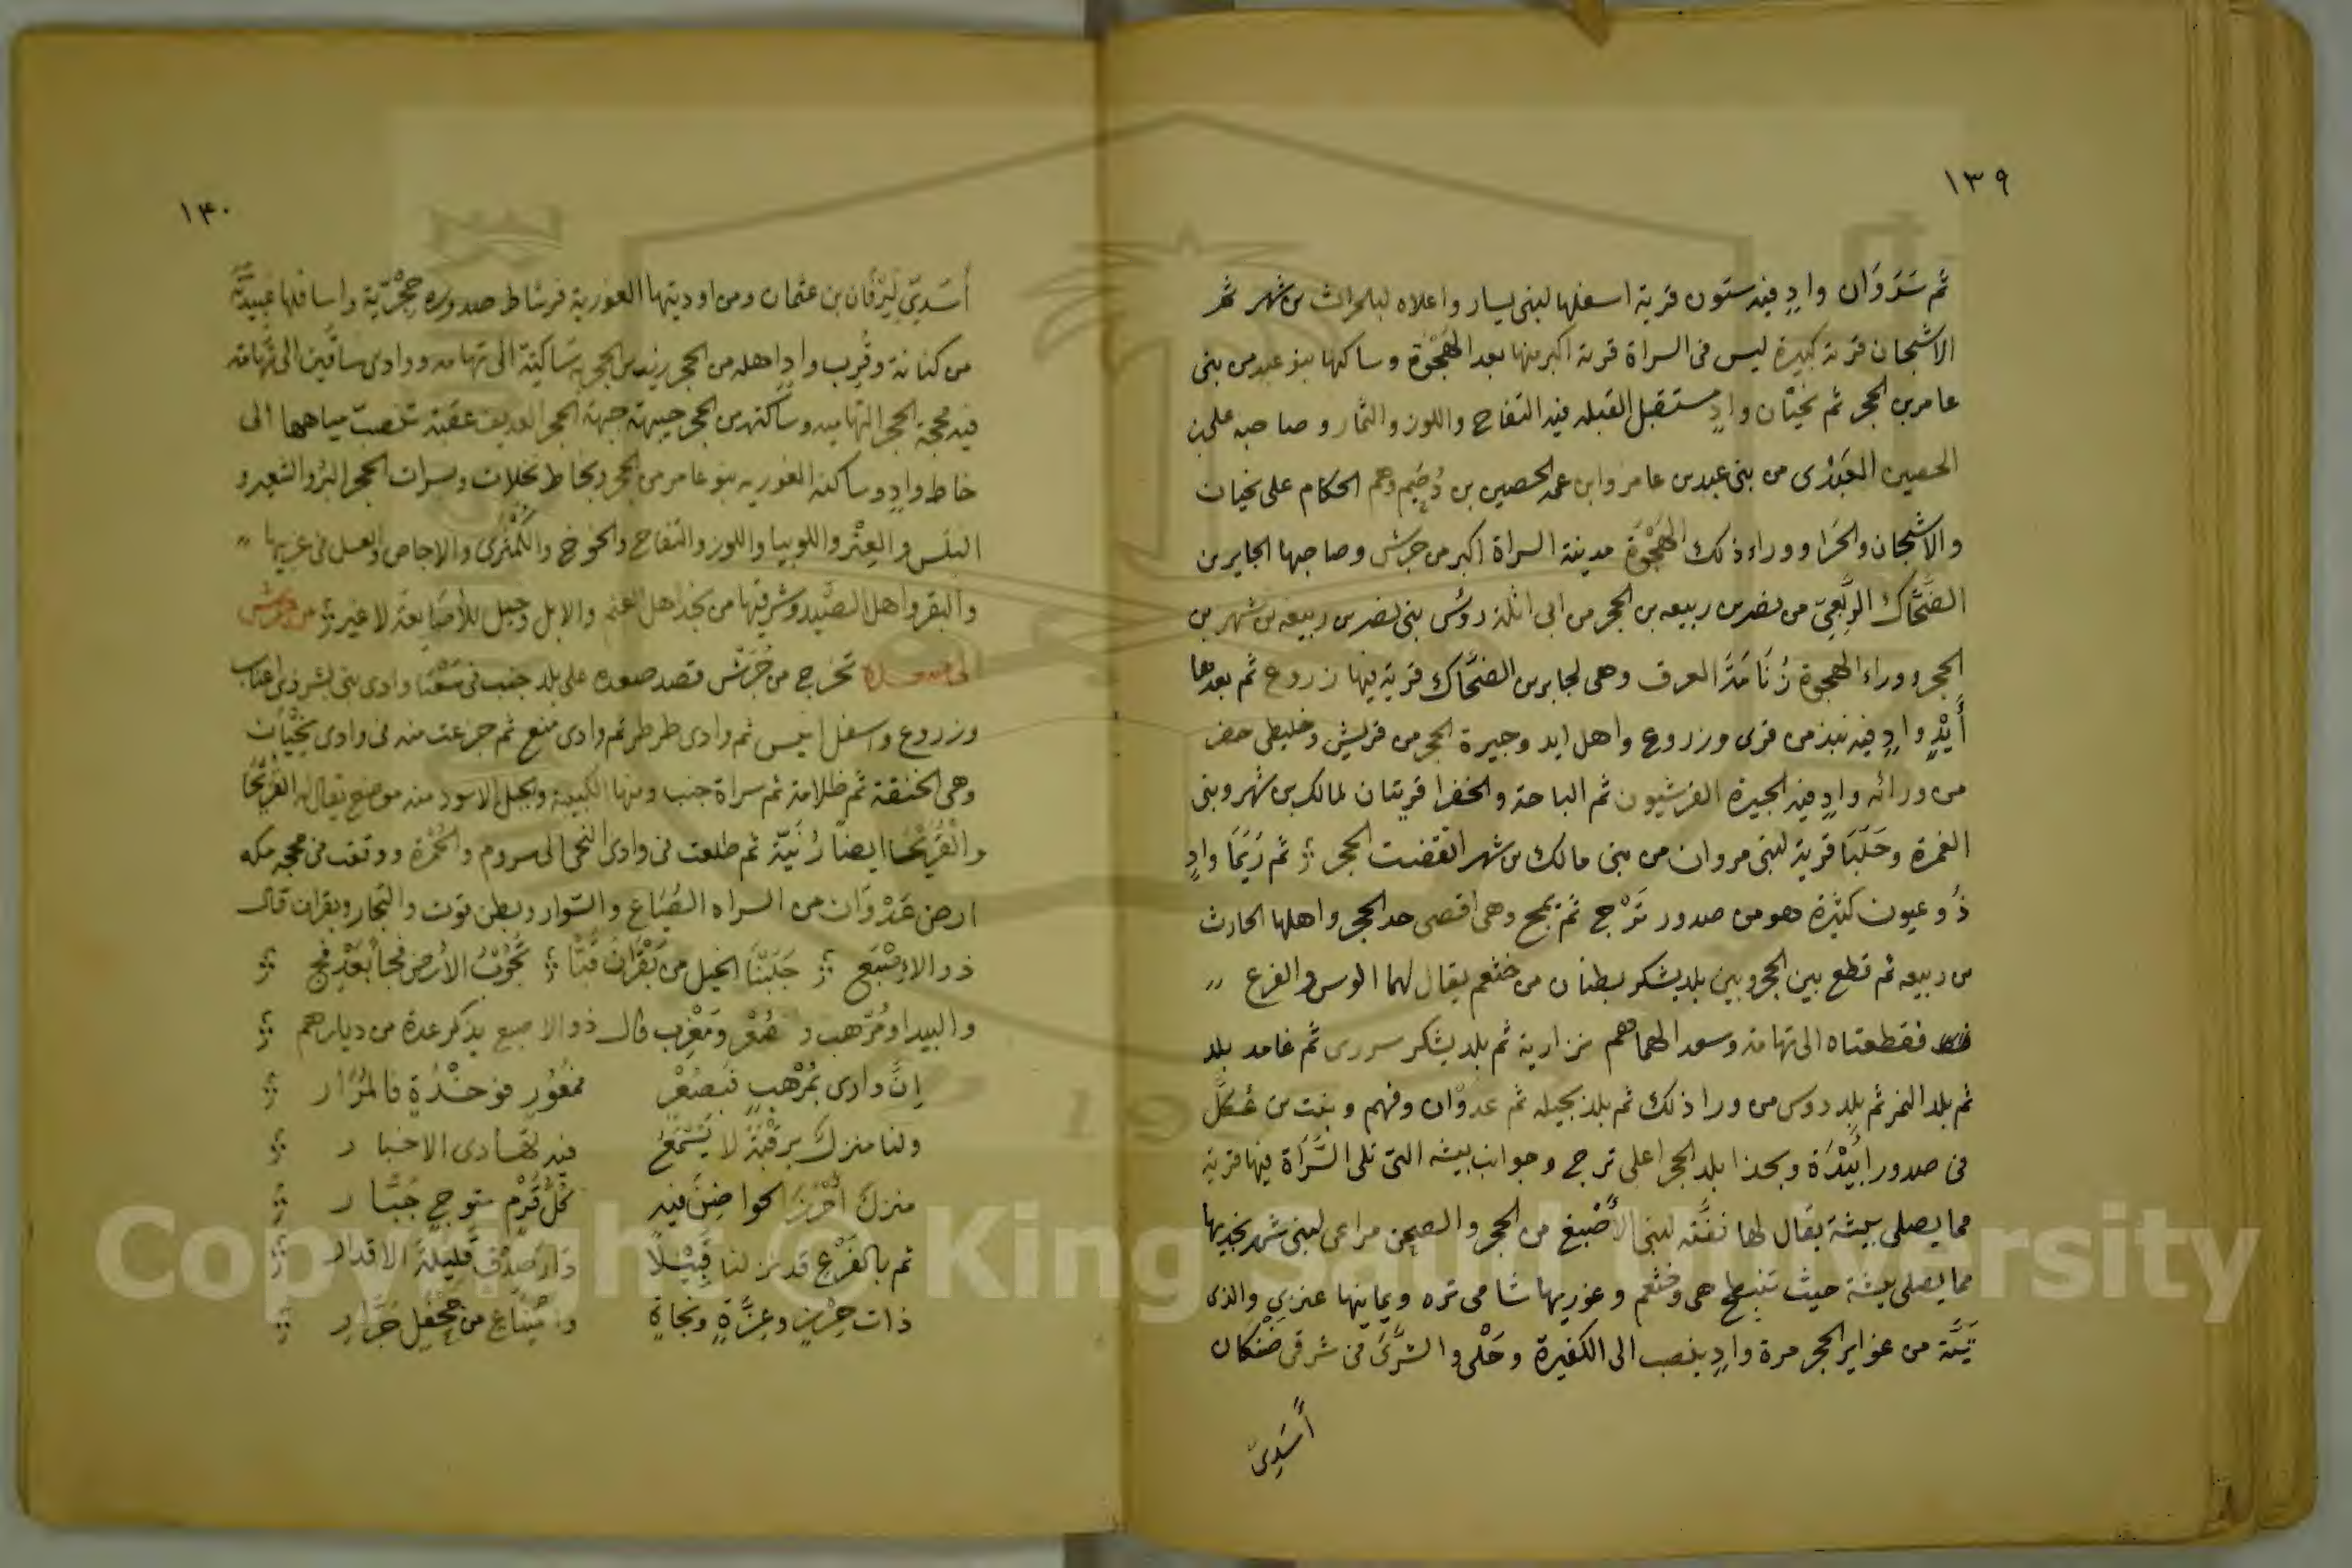 ١٣٩
ثم سَدَوَان وادٍ فيه ستون قرية اسفلها لبنى يسار واعلاه لبلحراث من شهر ثم
الاشجان قرية كبيرة ليس فى السراة قرية اكبر منها بعد الهَجْوَة وساكنها بنو عبد من بنى
عامر بن الحجر ثم نَحْيَان وادٍ مستقبل القبله فيه التفاح واللوز والثمار وصاحبه على بن
الحصين العَبْدى من بنى عبد بن عامر وابن عمه الحصين بن دُحَيم وهم الحكام على نحيان
والاشجان والحَرَا ووراء ذلك الهَجْوَة مدينة السراة اكبر من جرش وصاحبها الجابر بن
الضَحَّاك الرَبَعِىّ من نصر بن ربيعه بن الحجر من ابى اثلة روس بنى نصر بن ربيعه بن شهر بن
الحجر ووراء الهجوة زُنَامَة العرف وهى لجابر بن الضحَّاك قرية فيها زروع ثم بعدها
أَيْدٍ وادٍ فيه نبذ من قرى وزروع واهل ايد وجيرة الحجر من قريش وخليطى حضر
من ورائه وادٍ فيه الجيرة القرشيون ثم الباحة والخضرا قريتان لمالك بن شهر وبنى
الغمرة وحَلَبَا قرية لبنى مروان من بنى مالك بن شهر انقضت الحجر ثم رَيَمَا وادٍ
ذُو عيون كثيرة وهو من صدور تَرْج ثم بمح وهى اقصى حد الحجر واهلها الحارث
بن ربيعه ثم قطع بين الحجر وبين بلد يشكر بطنان من خثعم يقال لهما الوس والفرع
فقطعتاه الى تهامة وسعد الهماهم نزارية ثم بلد يشكر سررى ثم غامد بلد
ثم بلد النمر ثم بلد دوس من ورا ذلك ثم بلد بجيله ثم عدوان وفهم وبنت من عُكَل
فى صدور أَبِيْدَة وبحذا بلد الحجر اعلى ترج وجوانب بيشه التى تلى السَّرَاة فيها قرية
مما يصلى بيشة يقال لها نفَّه لبنى الأصْبغ من الحجر والصحن مراعى لبنى شهر بنجديها
مما يصلى بيشة حيث تنبطح هى وخثعم وغوريها شامى تره ويمانيها عنزى والذى
تَيَّة من غواير الحجر مرة وادٍ ينصب الى الكفيرة وحَلْى والشرَّى فى شرقى ضَنْكان
أَسَدِىّ
١٤٠
أَسَدِىّ لِبَرْقَان بن عثمان ومن اوديتها الغورية فرشاط صدوره حِجْرِيّة واسافلها عبيدَيَّة
من كنانة وقُرِب وادٍ اهله من الحجر زيد بن الحجر ساكنة الى تهامه ووادى ساقَين الى تهامة
فيه محجة الحجر التهاميه وساكنه من الحجر جيهة جبهة الحجر عقبة تنصب مياهها الى
خاط وادٍ وساكنه الغوريه بنو عامر من الحجر وبخاط نخلات وبسرات الحجر البُر والشعير و
البلَس والعِتْر واللوبيا واللوز والتفاح والخوخ والكُمَّثْرى والاجاص والعسل فى غربيها
والبقر واهل الصَّيد وشرقيّها من نجد اهل الغنم والابل وجبل للأصَابغَة لا غير من جرش
الى صعدة تخرج من جُرَش قصد صعده على بلد جنب فى سَعْيَا وادى بنى بشر ذى اعناب
وزروع واسفل ايس ثم وادى طرطر ثم وادى منع ثم جزعت منه فى وادى نَحْيَان
وهى الخنقة ثم ظلامة ثم سراة جنب ومنها الكبيبة وبجبل الاسود منه موضع يقال له القُرَيْحَا
والقُرَيْحَا ايضا زُنَيّة ثم طلعت فى وادى النحى الى سروم والحُمْرَة ووقعت فى محجه مكه
ارض عَدْوَان من السراه الصُيَاع والسّوار وبطن توت والنجار وبقران قال
ذو الاصْبَع جَلَبْنَا الخيل من بَقْرَان قُبًّا تَجُوْبُ الأرض فجًا بَعْدَ فج
والبيدا ومُرْهب وصُعْر ومَغْرِب قال ذو الاصبع يذكر عدة من ديارهم
إنَّ وادى بمُرْهبٍ فبصُعْرٍ فمعُورٍ فوَحْدُةٍ فالمُرَار
ولنا منزل برقْبَةَ لا يَسْمَعُ فيه تعادى الاخبار
منزلٌ أَحْرَزَ الحواضِنُ فيه كُلَّ قَرْمٍ متوجٍ جُبَّار
ثم بالفَرْع قد نزلنا قَبِيْلاً دَارَ صِدْقٍ قَلِيلَةَ الاقدار
ذات حِرْزٍ وعِزَّةٍ ونجاةٍ وامْتِنَاعٍ من جَحْفَلٍ جَرَّار
Copyright © King Saud University